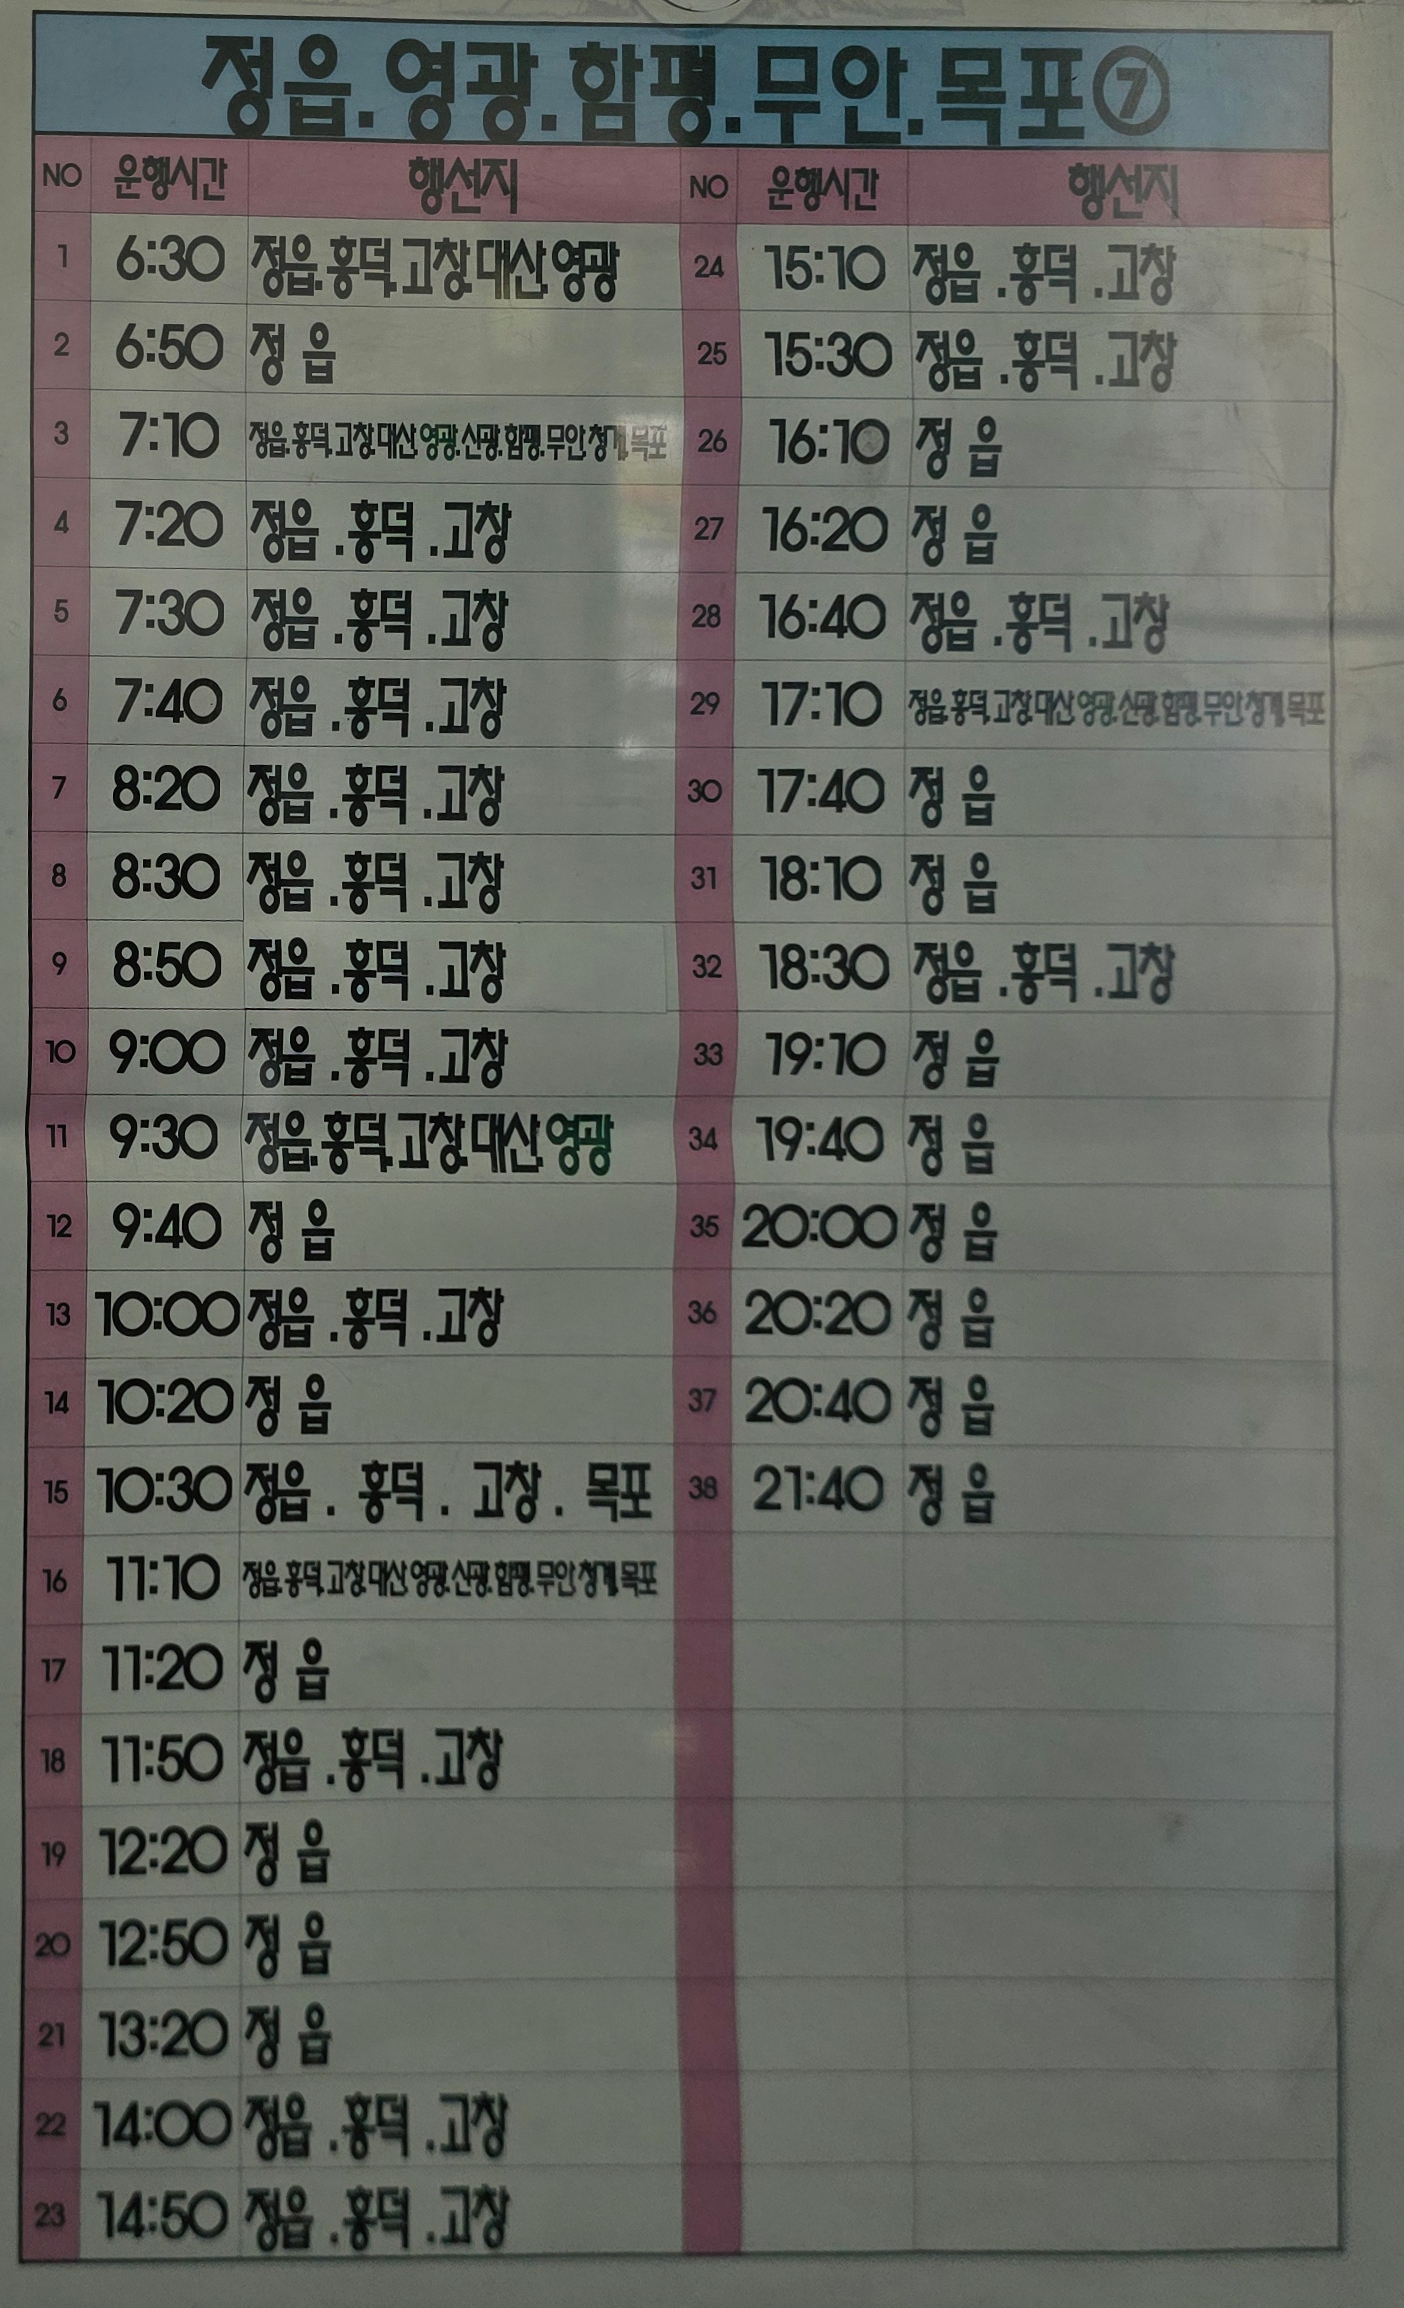 정읍.영광.함평.무안.목포⑦
NO 운행시간 행선지
1 6:30 정읍.흥덕.고창.대산.영광
2 6:50 정 읍
3 7:10 정읍.흥덕.고창.대산.영광.신광.함평.무안.청계.목포
4 7:20 정읍 .흥덕 .고창
5 7:30 정읍 .흥덕 .고창
6 7:40 정읍 .흥덕 .고창
7 8:20 정읍 .흥덕 .고창
8 8:30 정읍 .흥덕 .고창
9 8:50 정읍 .흥덕 .고창
10 9:00 정읍 .흥덕 .고창
11 9:30 정읍.흥덕.고창.대산.영광
12 9:40 정 읍
13 10:00 정읍 .흥덕 .고창
14 10:20 정 읍
15 10:30 정읍 . 흥덕 . 고창 . 목포
16 11:10 정읍.흥덕.고창.대산.영광.신광.함평.무안.청계.목포
17 11:20 정 읍
18 11:50 정읍 .흥덕 .고창
19 12:20 정 읍
20 12:50 정 읍
21 13:20 정 읍
22 14:00 정읍 .흥덕 .고창
23 14:50 정읍 .흥덕 .고창
NO 운행시간 행선지
24 15:10 정읍 .흥덕 .고창
25 15:30 정읍 .흥덕 .고창
26 16:10 정 읍
27 16:20 정 읍
28 16:40 정읍 .흥덕 .고창
29 17:10 정읍.흥덕.고창.대산.영광.신광.함평.무안.청계.목포
30 17:40 정 읍
31 18:10 정 읍
32 18:30 정읍 .흥덕 .고창
33 19:10 정 읍
34 19:40 정 읍
35 20:00 정 읍
36 20:20 정 읍
37 20:40 정 읍
38 21:40 정 읍